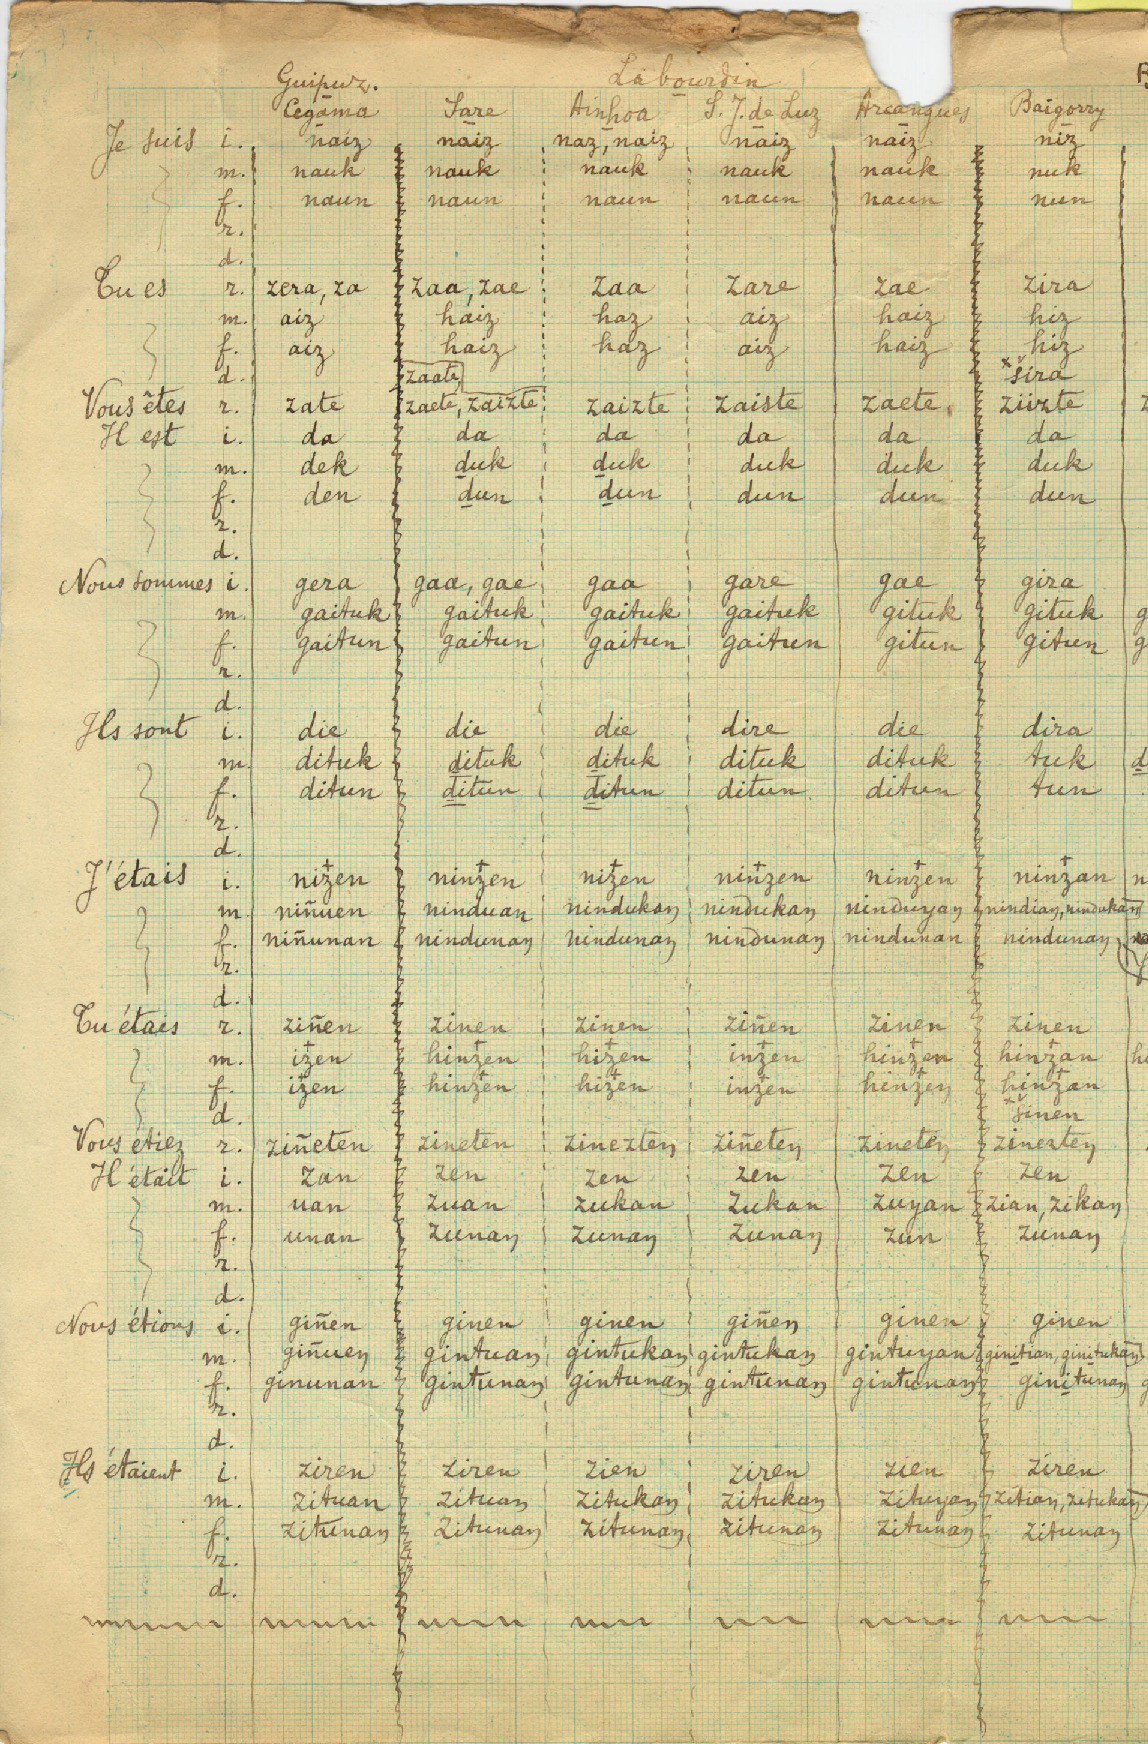 Guipuz. Labourdin
Cegama Sare Ainhoa S. J. de Luz Arcangues Baïgorry
Je suis i. naiz naiz naz, naiz naiz naiz niz
m. nauk nauk nauk nauk nauk nuk
f. naun naun naun naun naun nun
r.
d.
Tu es r. zera, za zaa, zae zaa zare zae zira
m. aiz haiz haz aiz haiz hiz
f. aiz haiz haz aiz haiz hiz
d. zaate, ×šira
Vous êtes r. zate zaete, zaizte zaizte zaiste zaete ziizte
Il est i. da da da da da da
m. dek duk duk duk duk duk
f. den dun dun dun dun dun
r.
d.
Nous sommes i. gera gaa, gae gaa gare gae gira
m. gaituk gaituk gaituk gaituk gituk gituk g
f. gaitun gaitun gaitun gaitun gitun gitun g
r.
d.
Ils sont i. die die die dire die dira
m. dituk dituk dituk dituk dituk tuk d
f. ditun ditun ditun ditun ditun tun
r.
d.
J'étais i. nizen ninzen nizen ninzen ninzen ninzan n
m. niñuen ninduan nindukan nindukan ninduyan nindian, nindukan
f. niñunan nindunan nindunan nindunan nindunan nindunan
r.
d.
Tu étais r. ziñen zinen zinen ziñen zinen zinen
m. izen hinzen hizen inzen hinzen hinzan
f. izen hinzen hizen inzen hinzen hinzan
d. ×šinen
Vous étiez r. ziñeten zineten zinezten ziñeten zineten zinezten
Il était i. zan zen zen zen zen zen
m. uan zuan zukan zukan zuyan zian, zikan
f. unan zunan zunan zunan zun zunan
r.
d.
Nous étions i. giñen ginen ginen giñen ginen ginen
m. giñuen gintuan gintukan gintukan gintuyan ginitian, ginitukan
f. ginunan gintunan gintunan gintunan gintunan ginitunan
r.
d.
Ils étaient i. ziren ziren zien ziren zien ziren
m. zituan zituan zitukan zitukan zituyan zitian, zitukan
f. zitunan zitunan zitunan zitunan zitunan zitunan
r.
d.